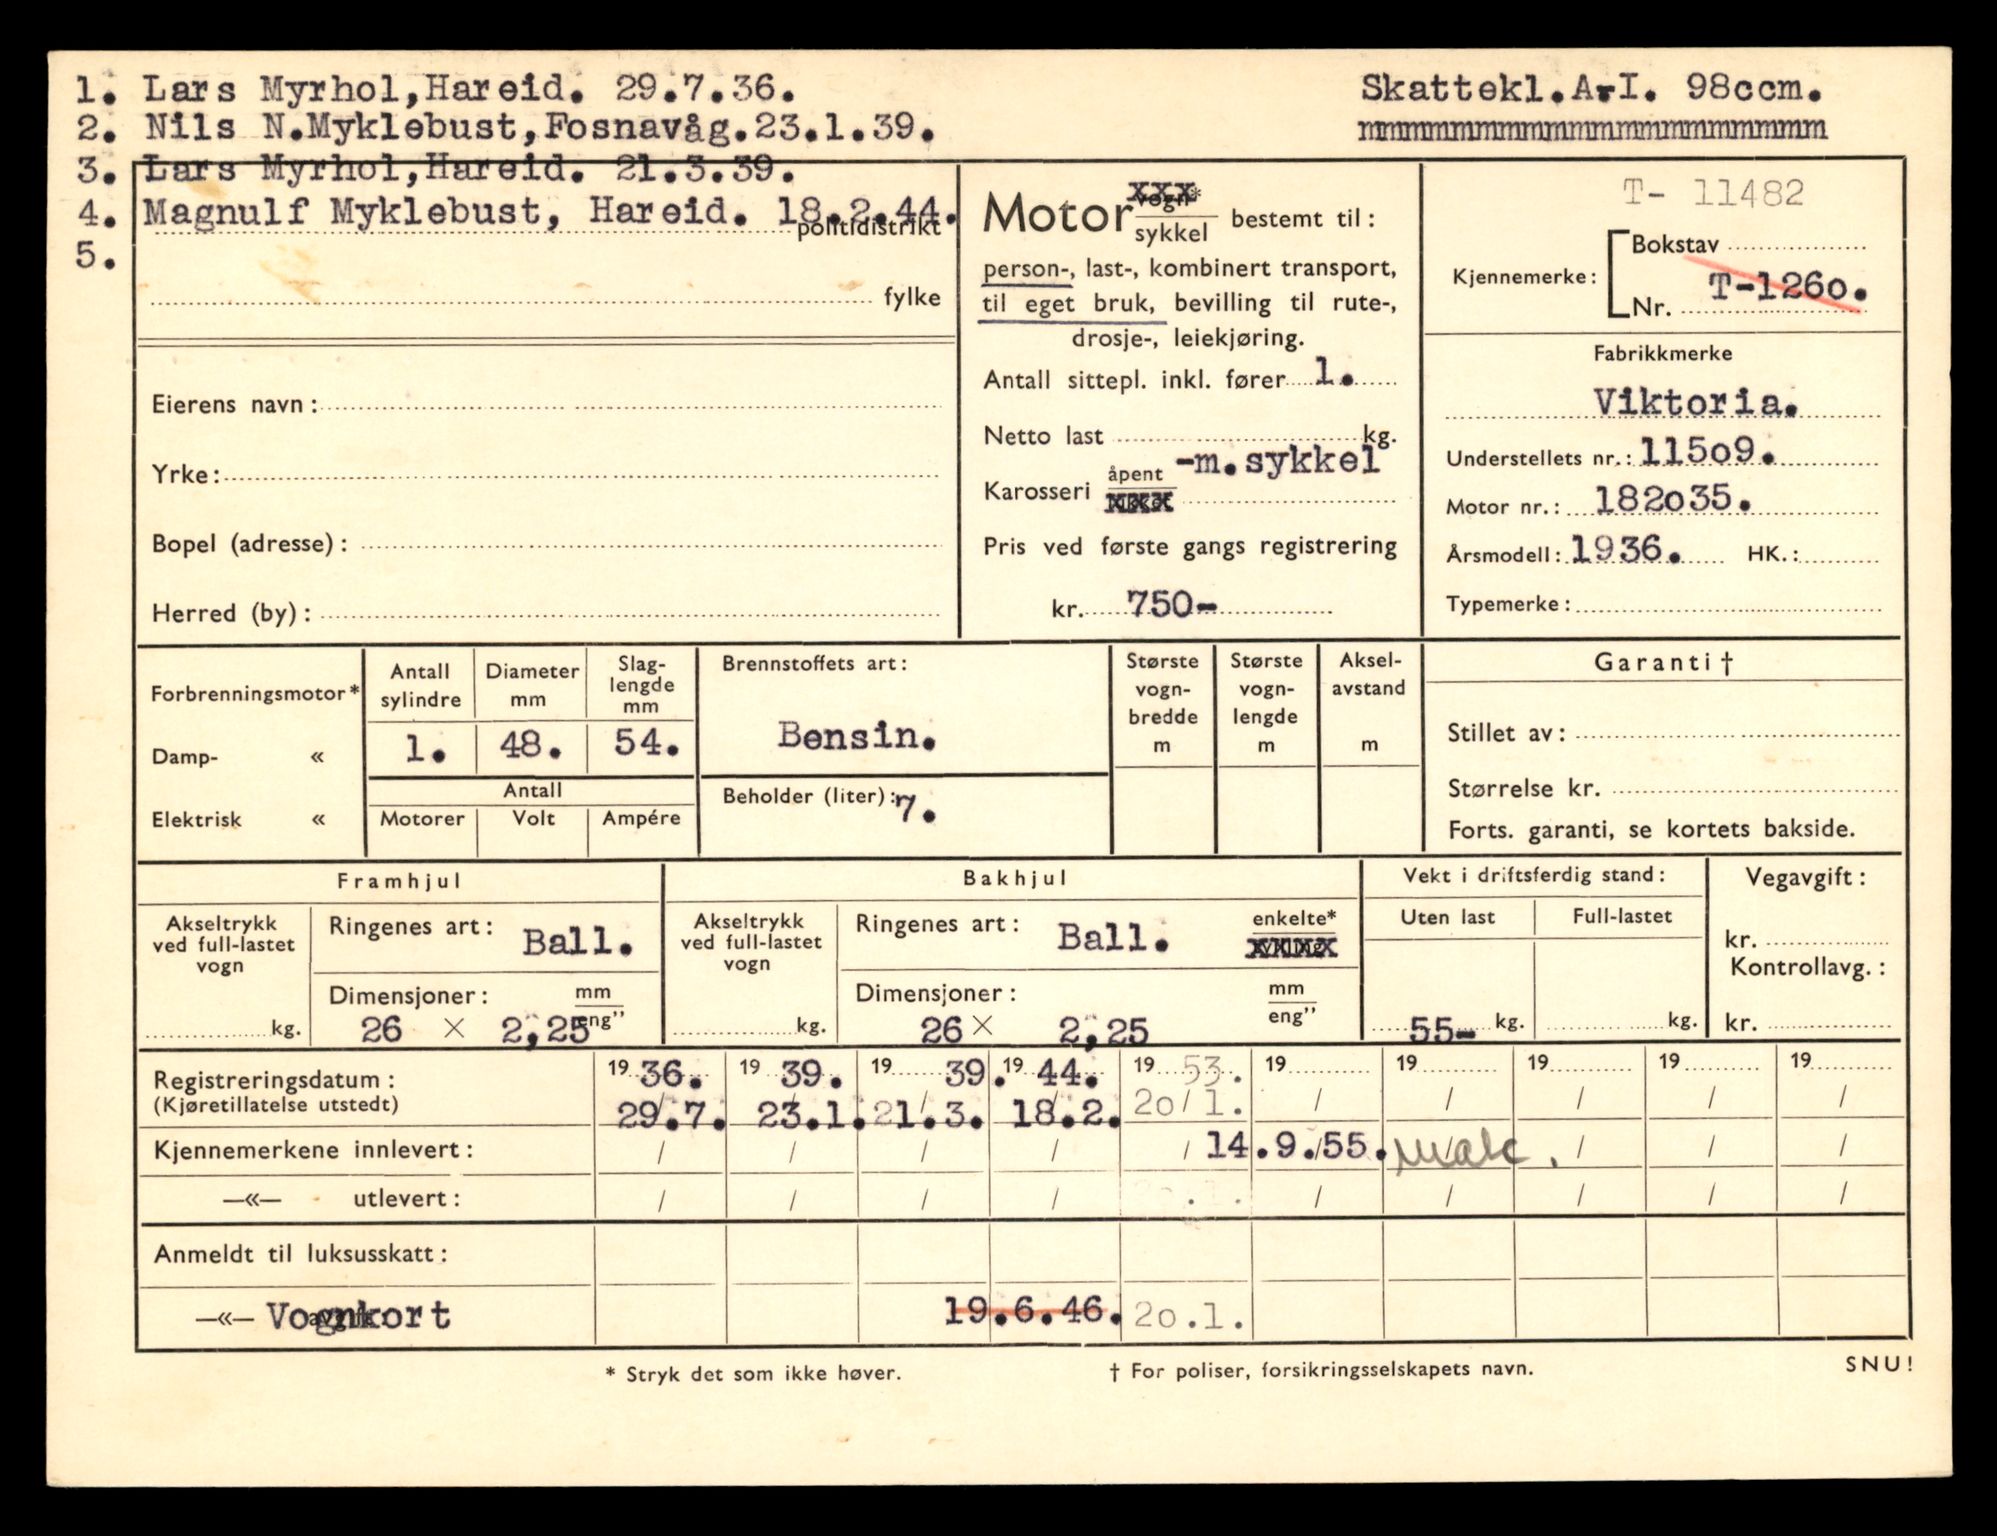 1. Lars Myrhol,Hareid. 29.7.36.
Skattekl.A.I. 98ccm.
2. Nils N.Myklebust,Fosnavåg.23.1.39.
mmmmmmmmmmmmmmmmmmmm
3. Lars Myrhol,Hareid. 21.3.39.
4. Magnulf Myklebust, Hareid. 18.2.44.
politidistrikt
5.
fylke
Eierens navn:
Yrke:
Bopel (adresse):
Herred (by):
Motor vogn*
xxx
sykkel bestemt til:
person-, last-, kombinert transport,
til eget bruk, bevilling til rute-,
drosje-, leiekjøring.
Antall sittepl. inkl. fører 1.
Netto last kg.
Karosseri åpent -m.sykkel
xxx
Pris ved første gangs registrering
kr. 750-
T- 11482
Kjennemerke: Bokstav
Nr. T-126o.
Fabrikkmerke
Viktoria.
Understellets nr.: 115o9.
Motor nr.: 182o35.
Årsmodell: 1936. HK.:
Typemerke:
Forbrenningsmotor*
Damp- «
Elektrisk «
Antall sylindre
1.
Diameter mm
48.
Slag-lengde mm
54.
Antall
Motorer Volt Ampére
Brennstoffets art:
Bensin.
Beholder (liter): 7.
Største vogn-bredde m
Største vogn-lengde m
Aksel-avstand m
Garanti †
Stillet av:
Størrelse kr.
Forts. garanti, se kortets bakside.
Framhjul
Akseltrykk ved full-lastet vogn
kg.
Ringenes art: Ball.
Dimensjoner: mm eng"
26 × 2,25
Bakhjul
Akseltrykk ved full-lastet vogn
kg.
Ringenes art: Ball. enkelte*
xxxx
Dimensjoner: mm eng"
26 × 2,25
Vekt i driftsferdig stand:
Uten last Full-lastet
55- kg. kg.
Vegavgift:
kr.
Kontrollavg.:
kr.
Registreringsdatum: 19 36. 19 39. 19 39. 19 44. 19 53. 19 19 19 19 19
(Kjøretillatelse utstedt) 29.7. 23.1. 21.3. 18.2. 2o/ 1. / / / / /
Kjennemerkene innlevert: / / / / / 14.9./55. mak. / / /
—«— utlevert: / / / / / / / / /
Anmeldt til luksusskatt:
—«— Vognkort 19.6.46. 2o.1.
* Stryk det som ikke høver.
† For poliser, forsikringsselskapets navn.
SNU!